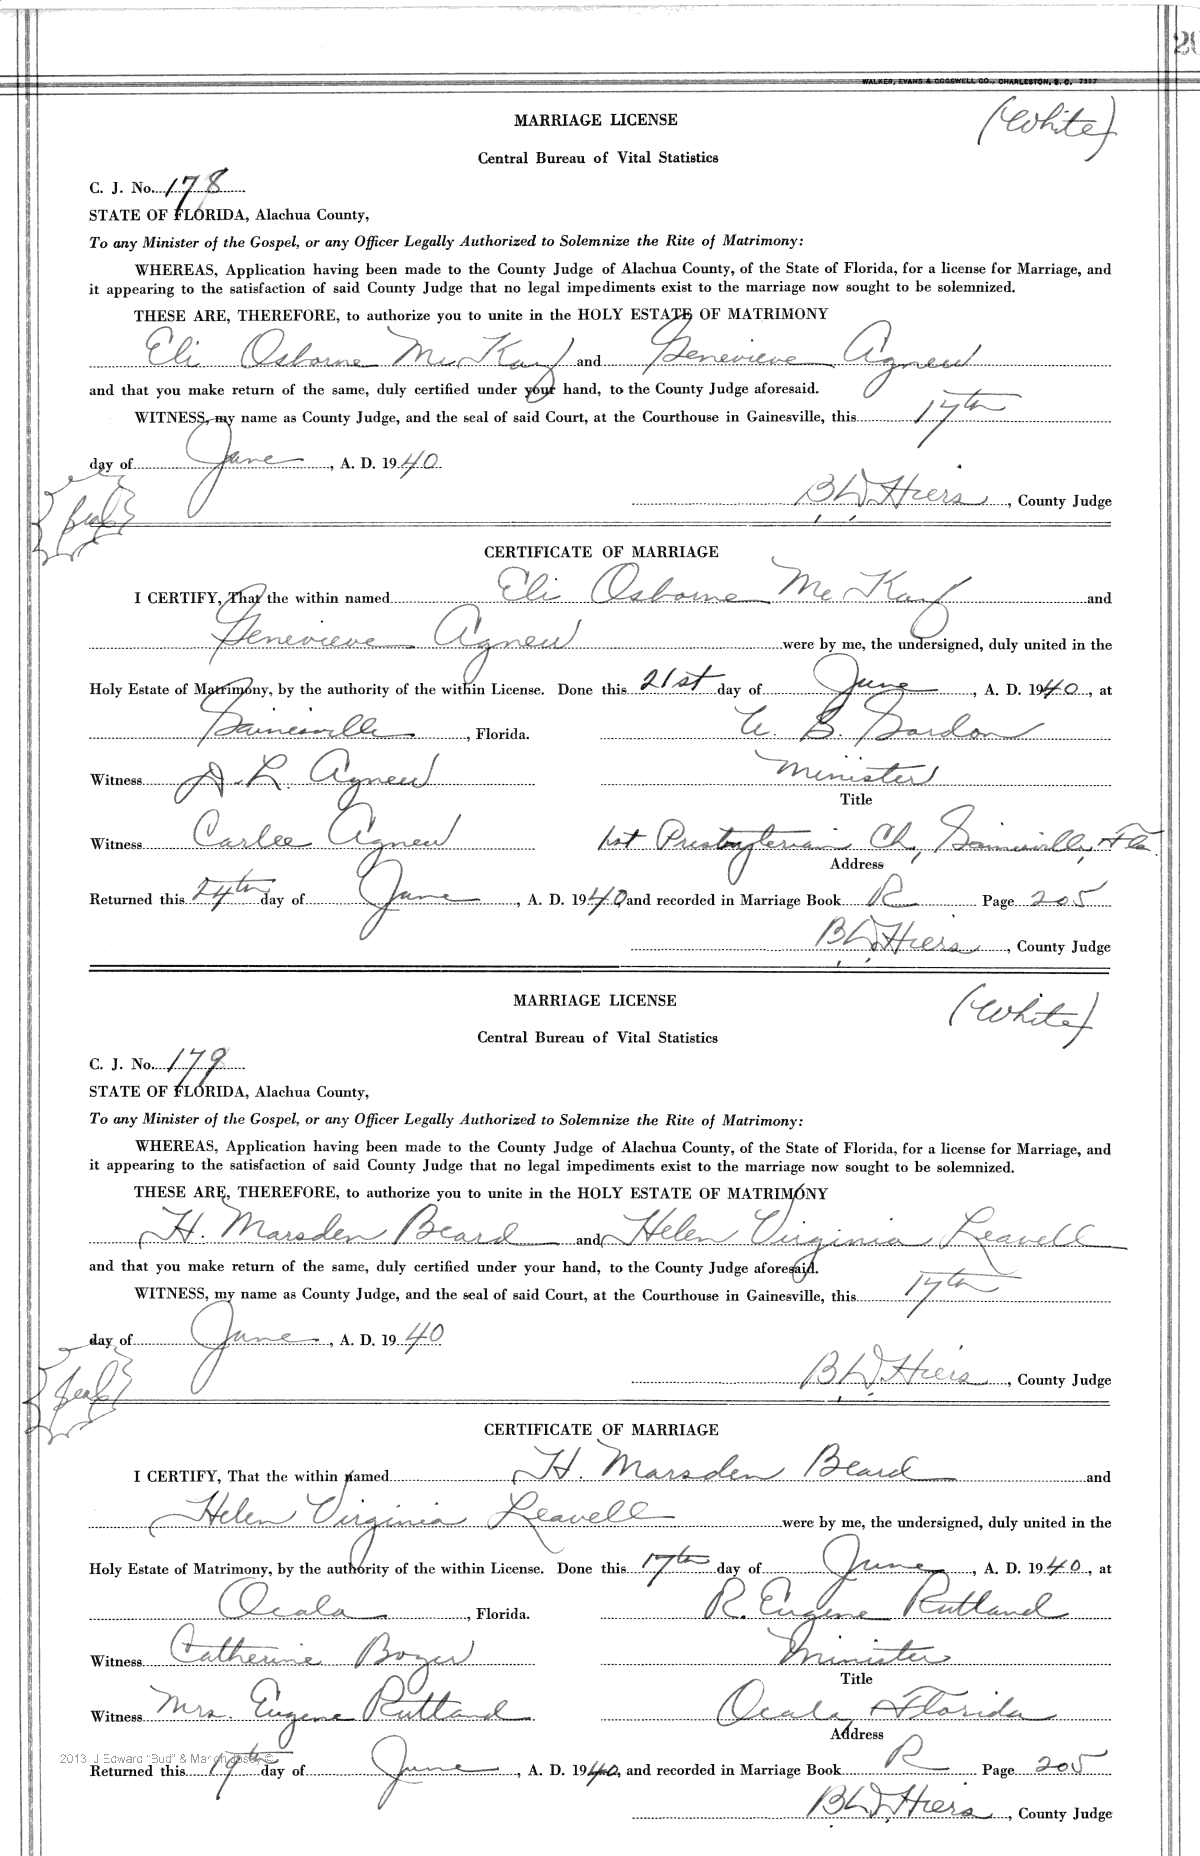 20
WALKER, EVANS & COGSWELL CO., CHARLESTON, S. C. 7357
MARRIAGE LICENSE
(White)
Central Bureau of Vital Statistics
C. J. No. 178
STATE OF FLORIDA, Alachua County,
To any Minister of the Gospel, or any Officer Legally Authorized to Solemnize the Rite of Matrimony:
WHEREAS, Application having been made to the County Judge of Alachua County, of the State of Florida, for a license for Marriage, and
it appearing to the satisfaction of said County Judge that no legal impediments exist to the marriage now sought to be solemnized.
THESE ARE, THEREFORE, to authorize you to unite in the HOLY ESTATE OF MATRIMONY
Eli Osborne McKay and Genevieve Agnew
and that you make return of the same, duly certified under your hand, to the County Judge aforesaid.
WITNESS, my name as County Judge, and the seal of said Court, at the Courthouse in Gainesville, this 17th
day of June, A. D. 1940
Seal
B D Hiers, County Judge
CERTIFICATE OF MARRIAGE
I CERTIFY, That the within named Eli Osborne McKay and
Genevieve Agnew were by me, the undersigned, duly united in the
Holy Estate of Matrimony, by the authority of the within License. Done this 21st day of June, A. D. 1940, at
Gainesville, Florida. U. S. Gordon
Witness D. L. Agnew Minister
Title
Witness Carlee Agnew 1st Presbyterian Ch, Gainesville, Fla.
Address
Returned this 24th day of June, A. D. 1940 and recorded in Marriage Book R Page 205
B D Hiers, County Judge
MARRIAGE LICENSE
(White)
Central Bureau of Vital Statistics
C. J. No. 179
STATE OF FLORIDA, Alachua County,
To any Minister of the Gospel, or any Officer Legally Authorized to Solemnize the Rite of Matrimony:
WHEREAS, Application having been made to the County Judge of Alachua County, of the State of Florida, for a license for Marriage, and
it appearing to the satisfaction of said County Judge that no legal impediments exist to the marriage now sought to be solemnized.
THESE ARE, THEREFORE, to authorize you to unite in the HOLY ESTATE OF MATRIMONY
H. Marsden Beard and Helen Virginia Leavell
and that you make return of the same, duly certified under your hand, to the County Judge aforesaid.
WITNESS, my name as County Judge, and the seal of said Court, at the Courthouse in Gainesville, this 17th
day of June, A. D. 1940
Seal
B D Hiers, County Judge
CERTIFICATE OF MARRIAGE
I CERTIFY, That the within named H. Marsden Beard and
Helen Virginia Leavell were by me, the undersigned, duly united in the
Holy Estate of Matrimony, by the authority of the within License. Done this 17th day of June, A. D. 1940, at
Ocala, Florida. R. Eugene Rutland
Witness Catherine Bozer Minister
Title
Witness Mrs. Eugene Rutland Ocala, Florida
Address
2013 J Edward "Bud" & Marion ©
Returned this 19th day of June, A. D. 1940, and recorded in Marriage Book R Page 205
B D Hiers, County Judge